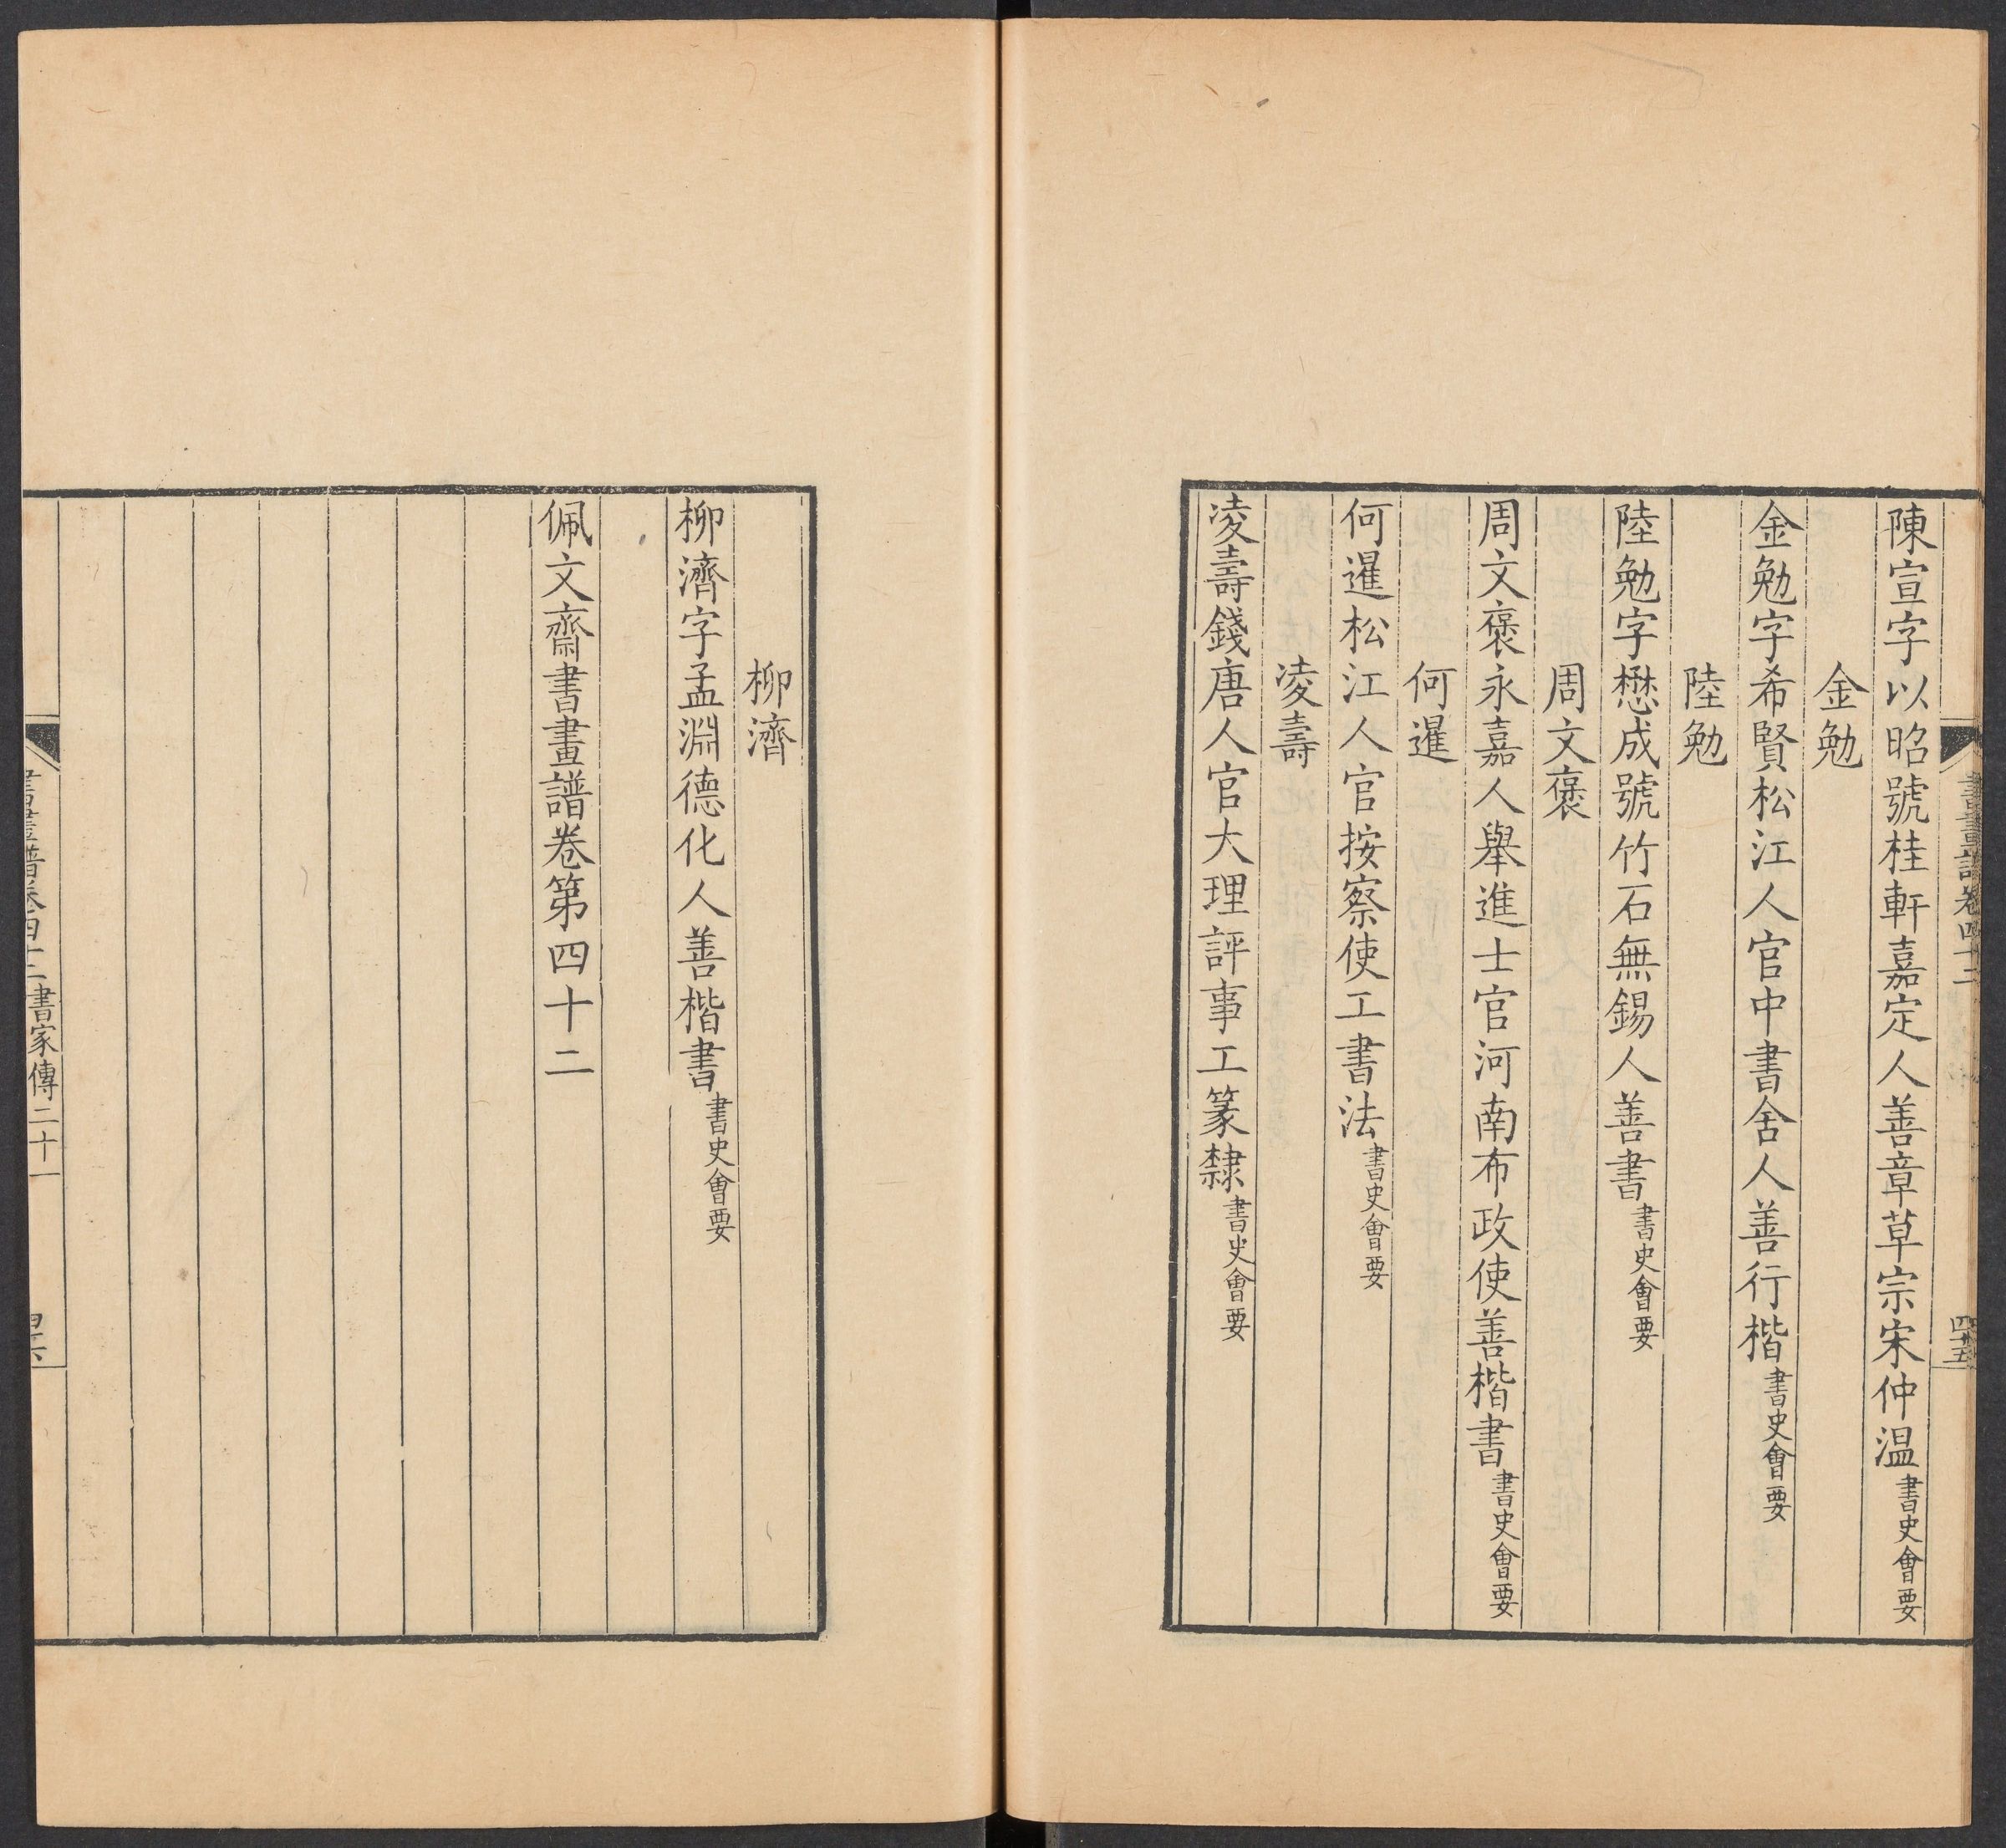 書畫譜卷四十二
四十五
陳宣字以昭號桂軒嘉定人善章草宗宋仲温書史會要
金勉
金勉字希賢松江人官中書舍人善行楷書史會要
陸勉
陸勉字懋成號竹石無錫人善書書史會要
周文褒
周文褒永嘉人舉進士官河南布政使善楷書書史會要
何暹
何暹松江人官按察使工書法書史會要
凌壽
凌壽錢唐人官大理評事工篆隸書史會要
柳濟
柳濟字孟淵德化人善楷書書史會要
佩文齋書畫譜卷第四十二
書畫譜卷四十二 書家傳二十一
四十六